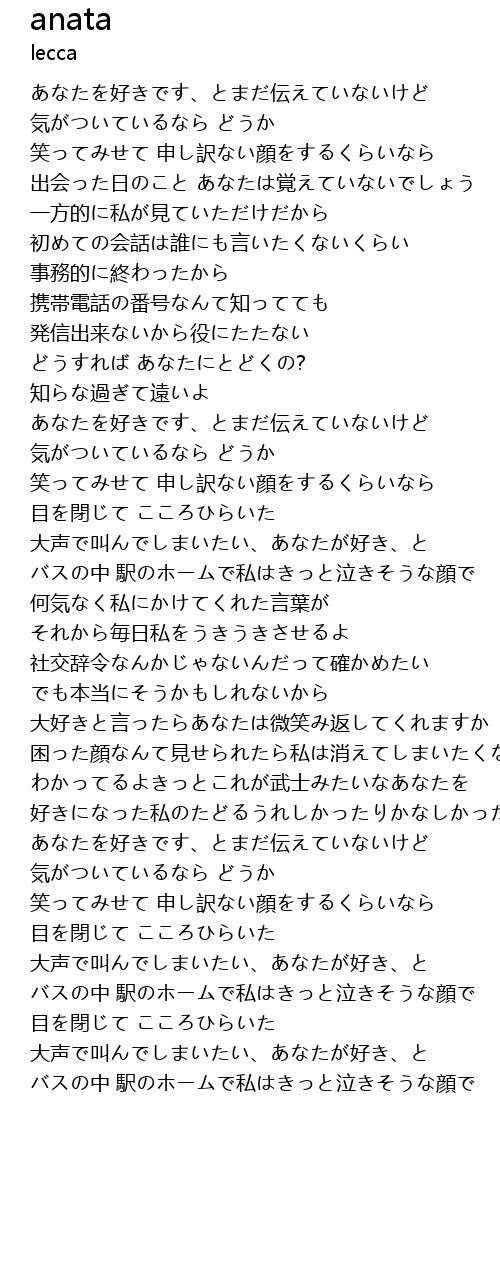 anata
lecca
あなたを好きです、とまだ伝えていないけど
気がついているなら どうか
笑ってみせて 申し訳ない顔をするくらいなら
出会った日のこと あなたは覚えていないでしょう
一方的に私が見ていただけだから
初めての会話は誰にも言いたくないくらい
事務的に終わったから
携帯電話の番号なんて知ってても
発信出来ないから役にたたない
どうすれば あなたにとどくの?
知らな過ぎて遠いよ
あなたを好きです、とまだ伝えていないけど
気がついているなら どうか
笑ってみせて 申し訳ない顔をするくらいなら
目を閉じて こころひらいた
大声で叫んでしまいたい、あなたが好き、と
バスの中 駅のホームで私はきっと泣きそうな顔で
何気なく私にかけてくれた言葉が
それから毎日私をうきうきさせるよ
社交辞令なんかじゃないんだって確かめたい
でも本当にそうかもしれないから
大好きと言ったらあなたは微笑み返してくれますか
困った顔なんて見せられたら私は消えてしまいたくな
わかってるよきっとこれが武士みたいなあなたを
好きになった私のたどるうれしかったりかなしかった
あなたを好きです、とまだ伝えていないけど
気がついているなら どうか
笑ってみせて 申し訳ない顔をするくらいなら
目を閉じて こころひらいた
大声で叫んでしまいたい、あなたが好き、と
バスの中 駅のホームで私はきっと泣きそうな顔で
目を閉じて こころひらいた
大声で叫んでしまいたい、あなたが好き、と
バスの中 駅のホームで私はきっと泣きそうな顔で